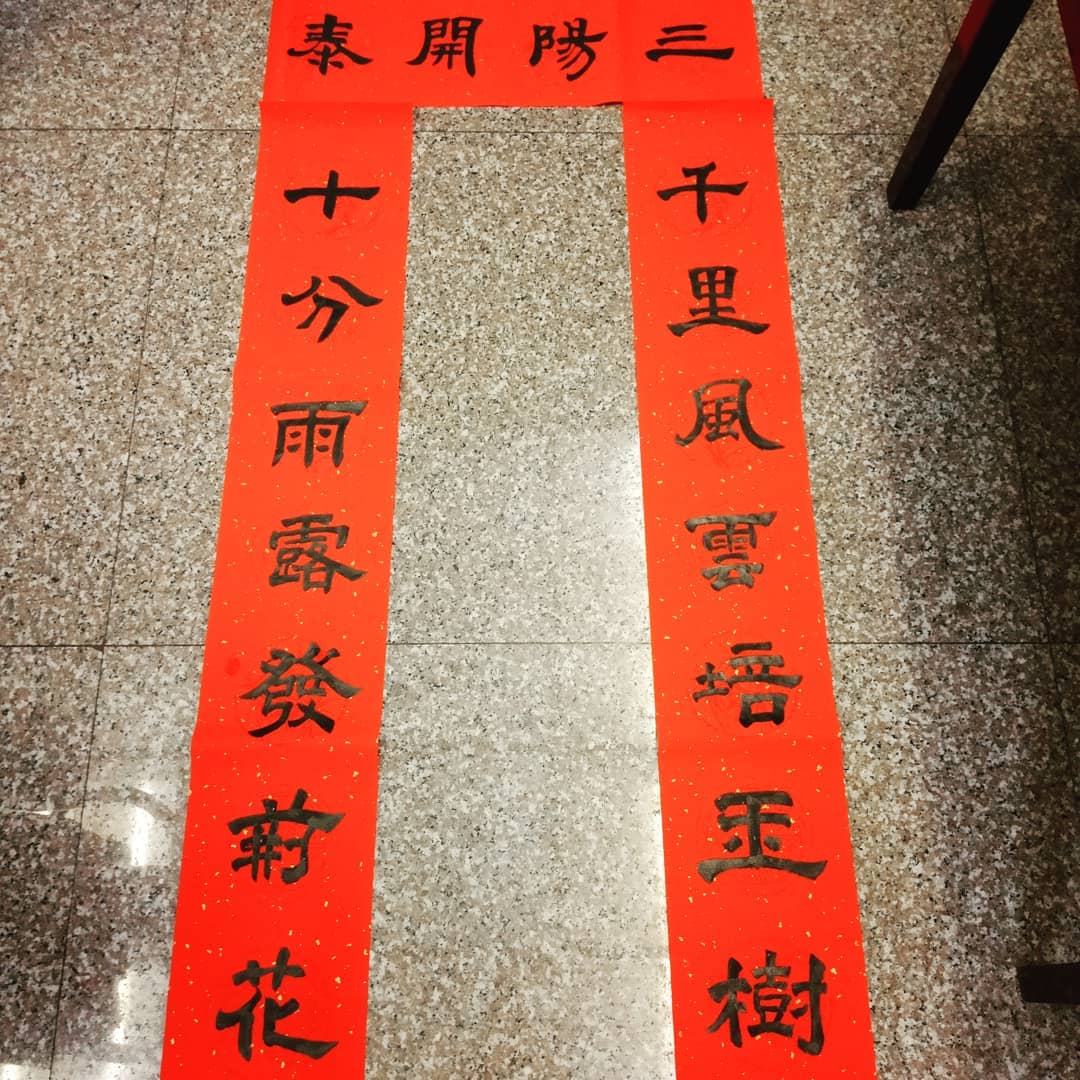 三陽開泰
千里風雲培玉樹
十分雨露發荊花